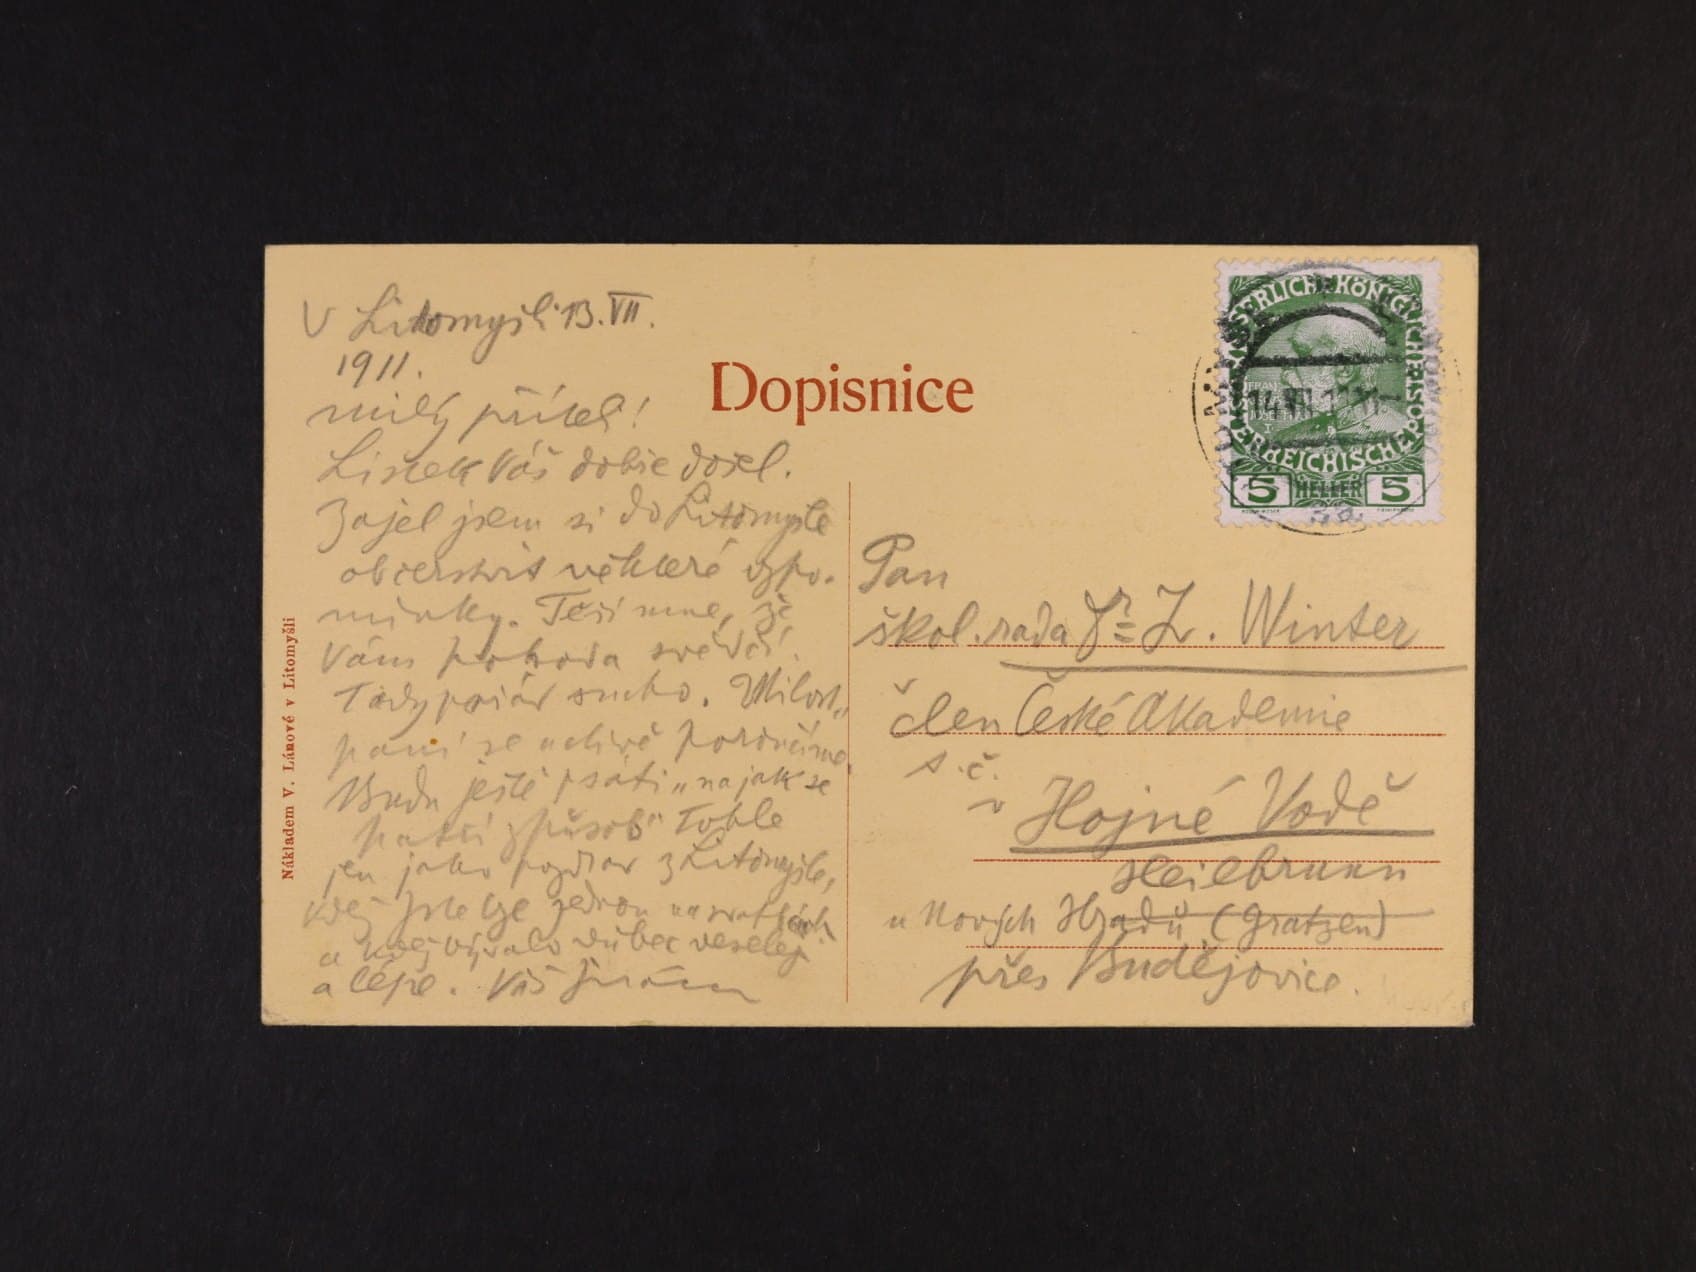 V Litomyšli 13. VII.
1911.
milý příteli!
Lístek Váš dobře došel.
Zajel jsem si do Litomyšle
občerstvit některé vzpo-
mínky. Těší mne, že
Vám pohoda svědčí.
Tady pořád sucho. Milost„
paní se uctivě poroučíme.
Budu ještě psáti „na jak se
patří způsob" Tohle
jen jako pozdrav z Litomyšle,
kdej jste lze jednou na svatbách
a kdej bývalo vůbec veseleji
a lépe. Váš
Dopisnice
Nákladem V. Lánové v Litomyšli
KAISERLICHE KÖNIGLICHE ÖSTERREICHISCHE POST
FRANZ JOSEF I.
5 HELLER 5
14 VII 11
Pan
škol. rada Dr Z. Winter
člen České Akademie
t. č.
v Hojné Vodě
Heilbrunn
u Nových Hradů (Gratzen)
přes Budějovice.